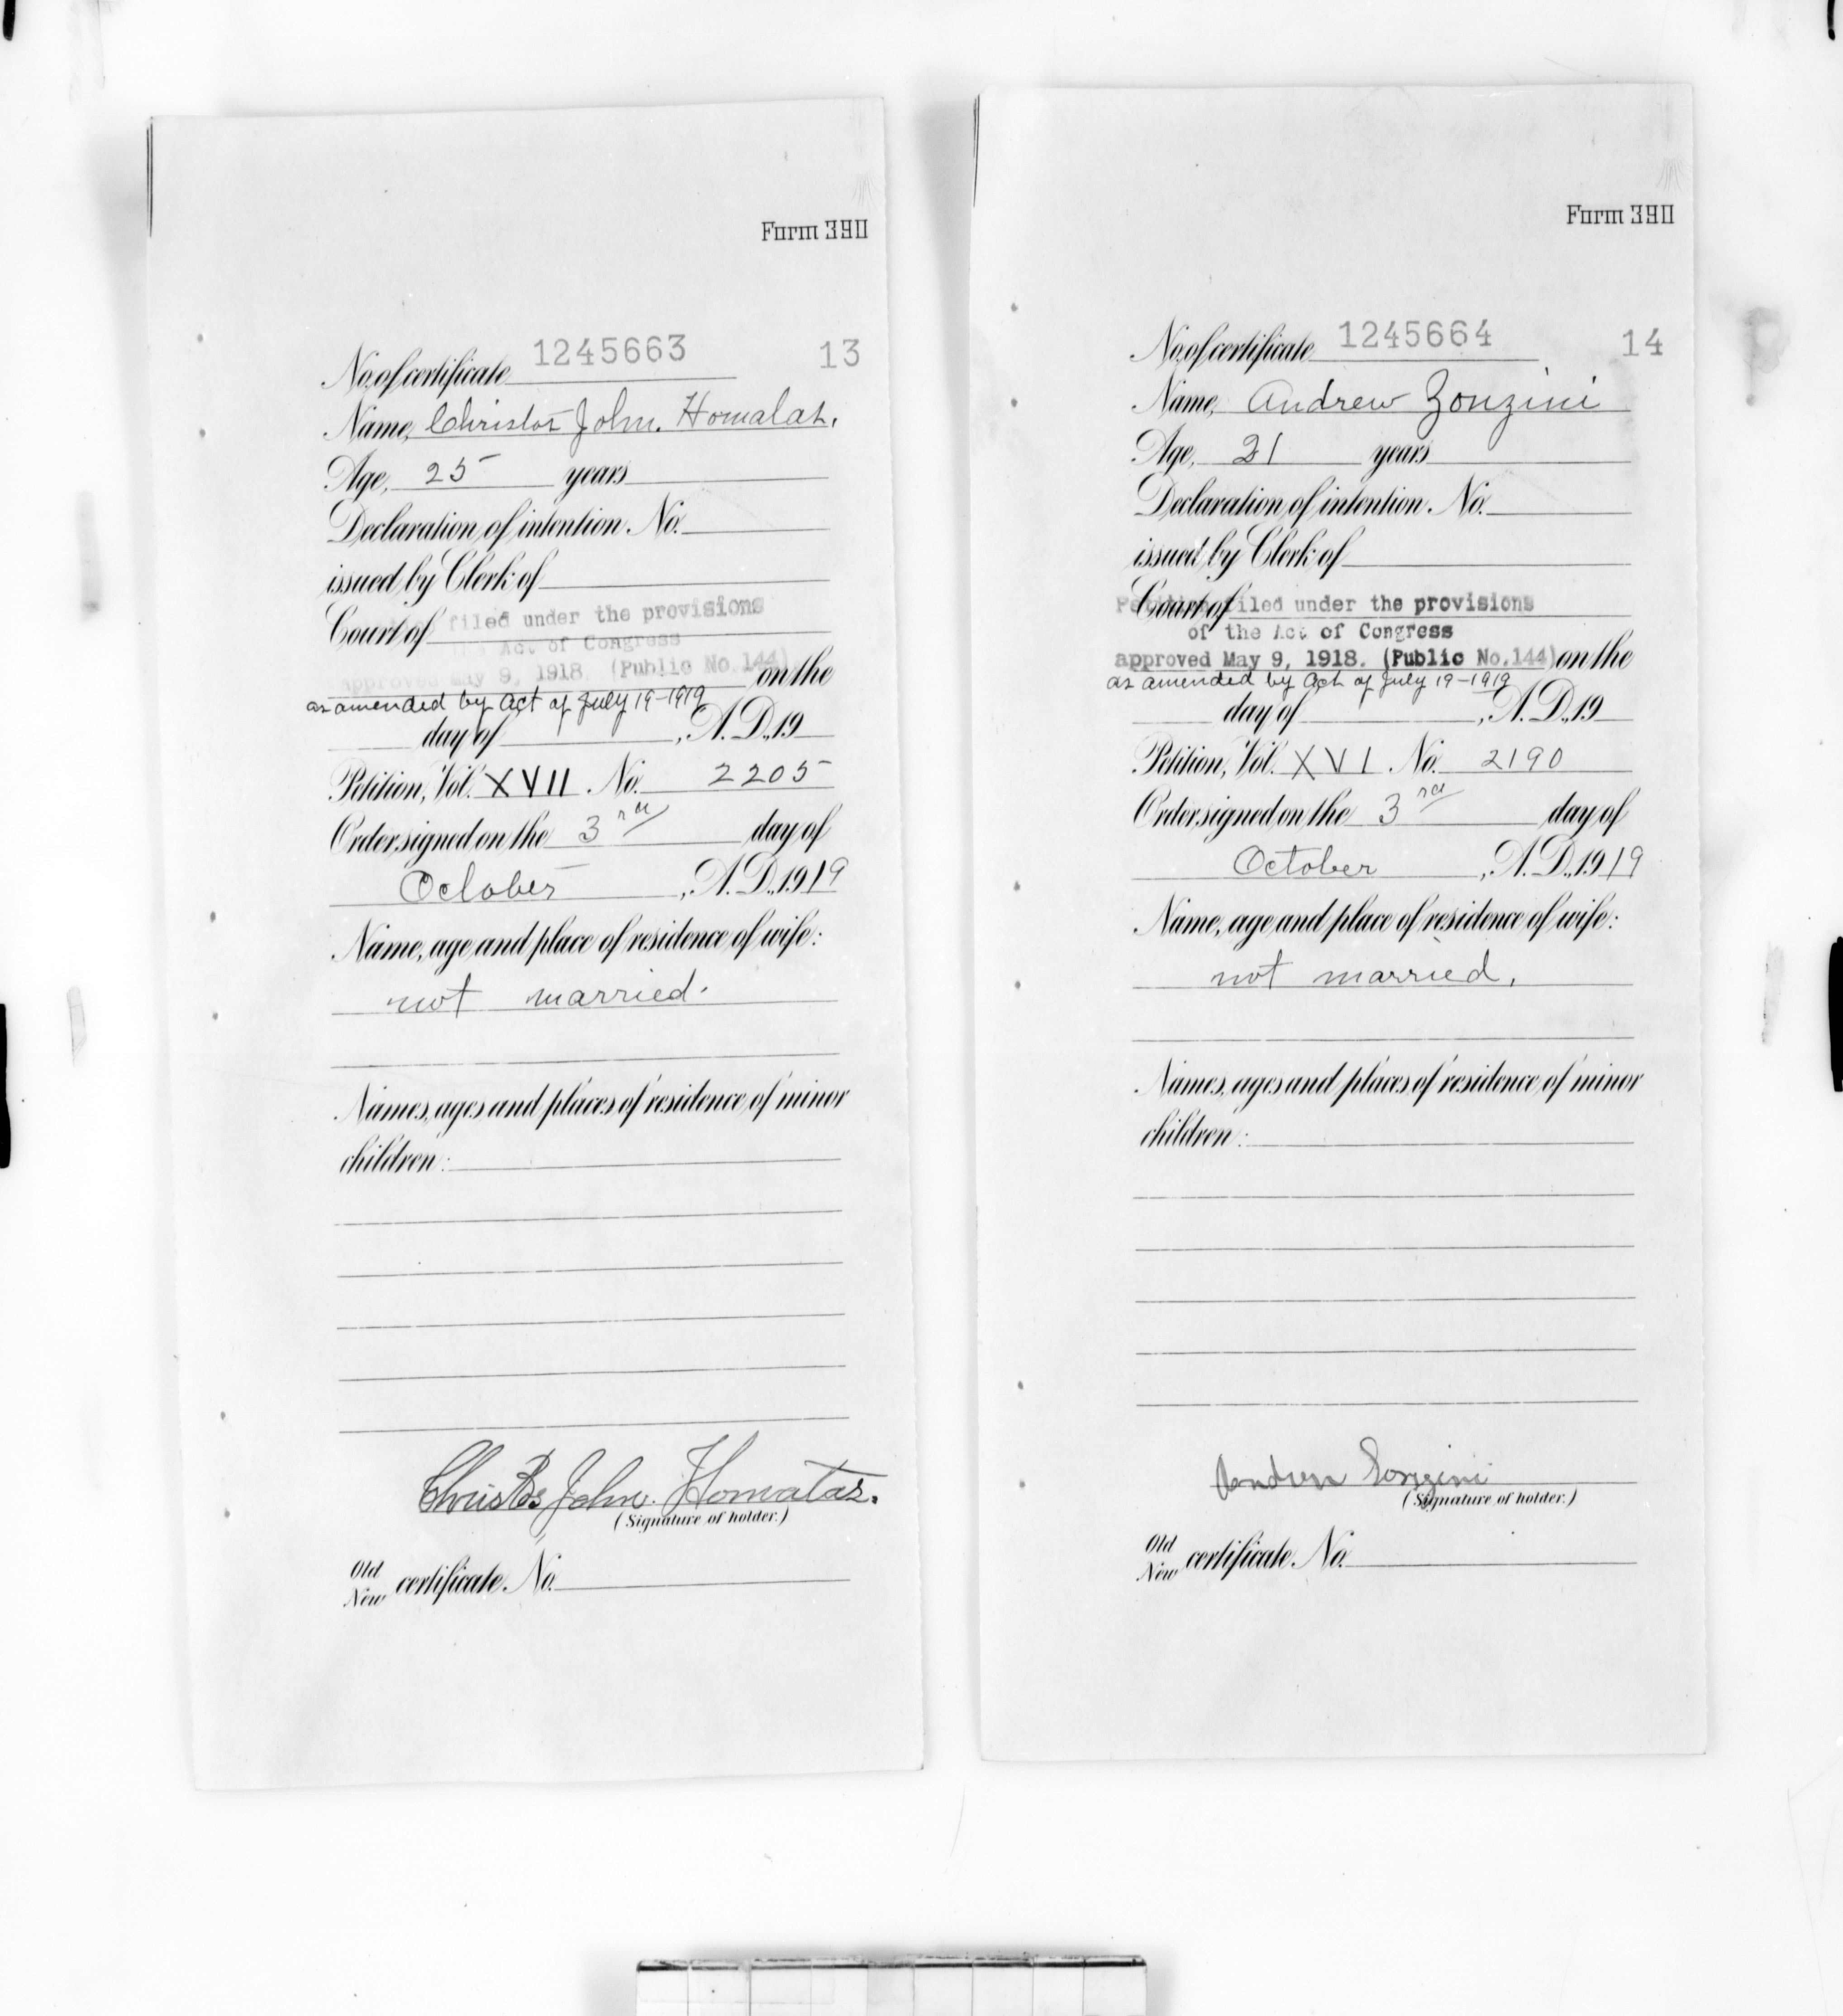 Form 390
No. of certificate 1245663 13
Name, Christos John. Homatas.
Age, 25 years
Declaration of intention No.
issued by Clerk of
Court of filed under the provisions
Act of Congress
approved May 9, 1918. (Public No.144) on the
as amended by Act of July 19-1919
day of , A.D. 19
Petition, Vol. XVII. No. 2205
Order signed on the 3rd day of
October , A.D. 1919
Name, age and place of residence of wife:
not married.
Names, ages and places of residence of minor
children:
Christos John. Homatas.
(Signature of holder.)
Old
New certificate No.
Form 390
No. of certificate 1245664 14
Name, Andrew Zonzini
Age, 21 years
Declaration of intention No.
issued by Clerk of
Court of
Petition filed under the provisions
of the Act of Congress
approved May 9, 1918. (Public No.144) on the
as amended by Act of July 19-1919
day of , A.D. 19
Petition, Vol. XVI. No. 2190
Order signed on the 3rd day of
October , A.D. 1919
Name, age and place of residence of wife:
not married.
Names, ages and places of residence of minor
children:
(Signature of holder.)
Old
New certificate No.